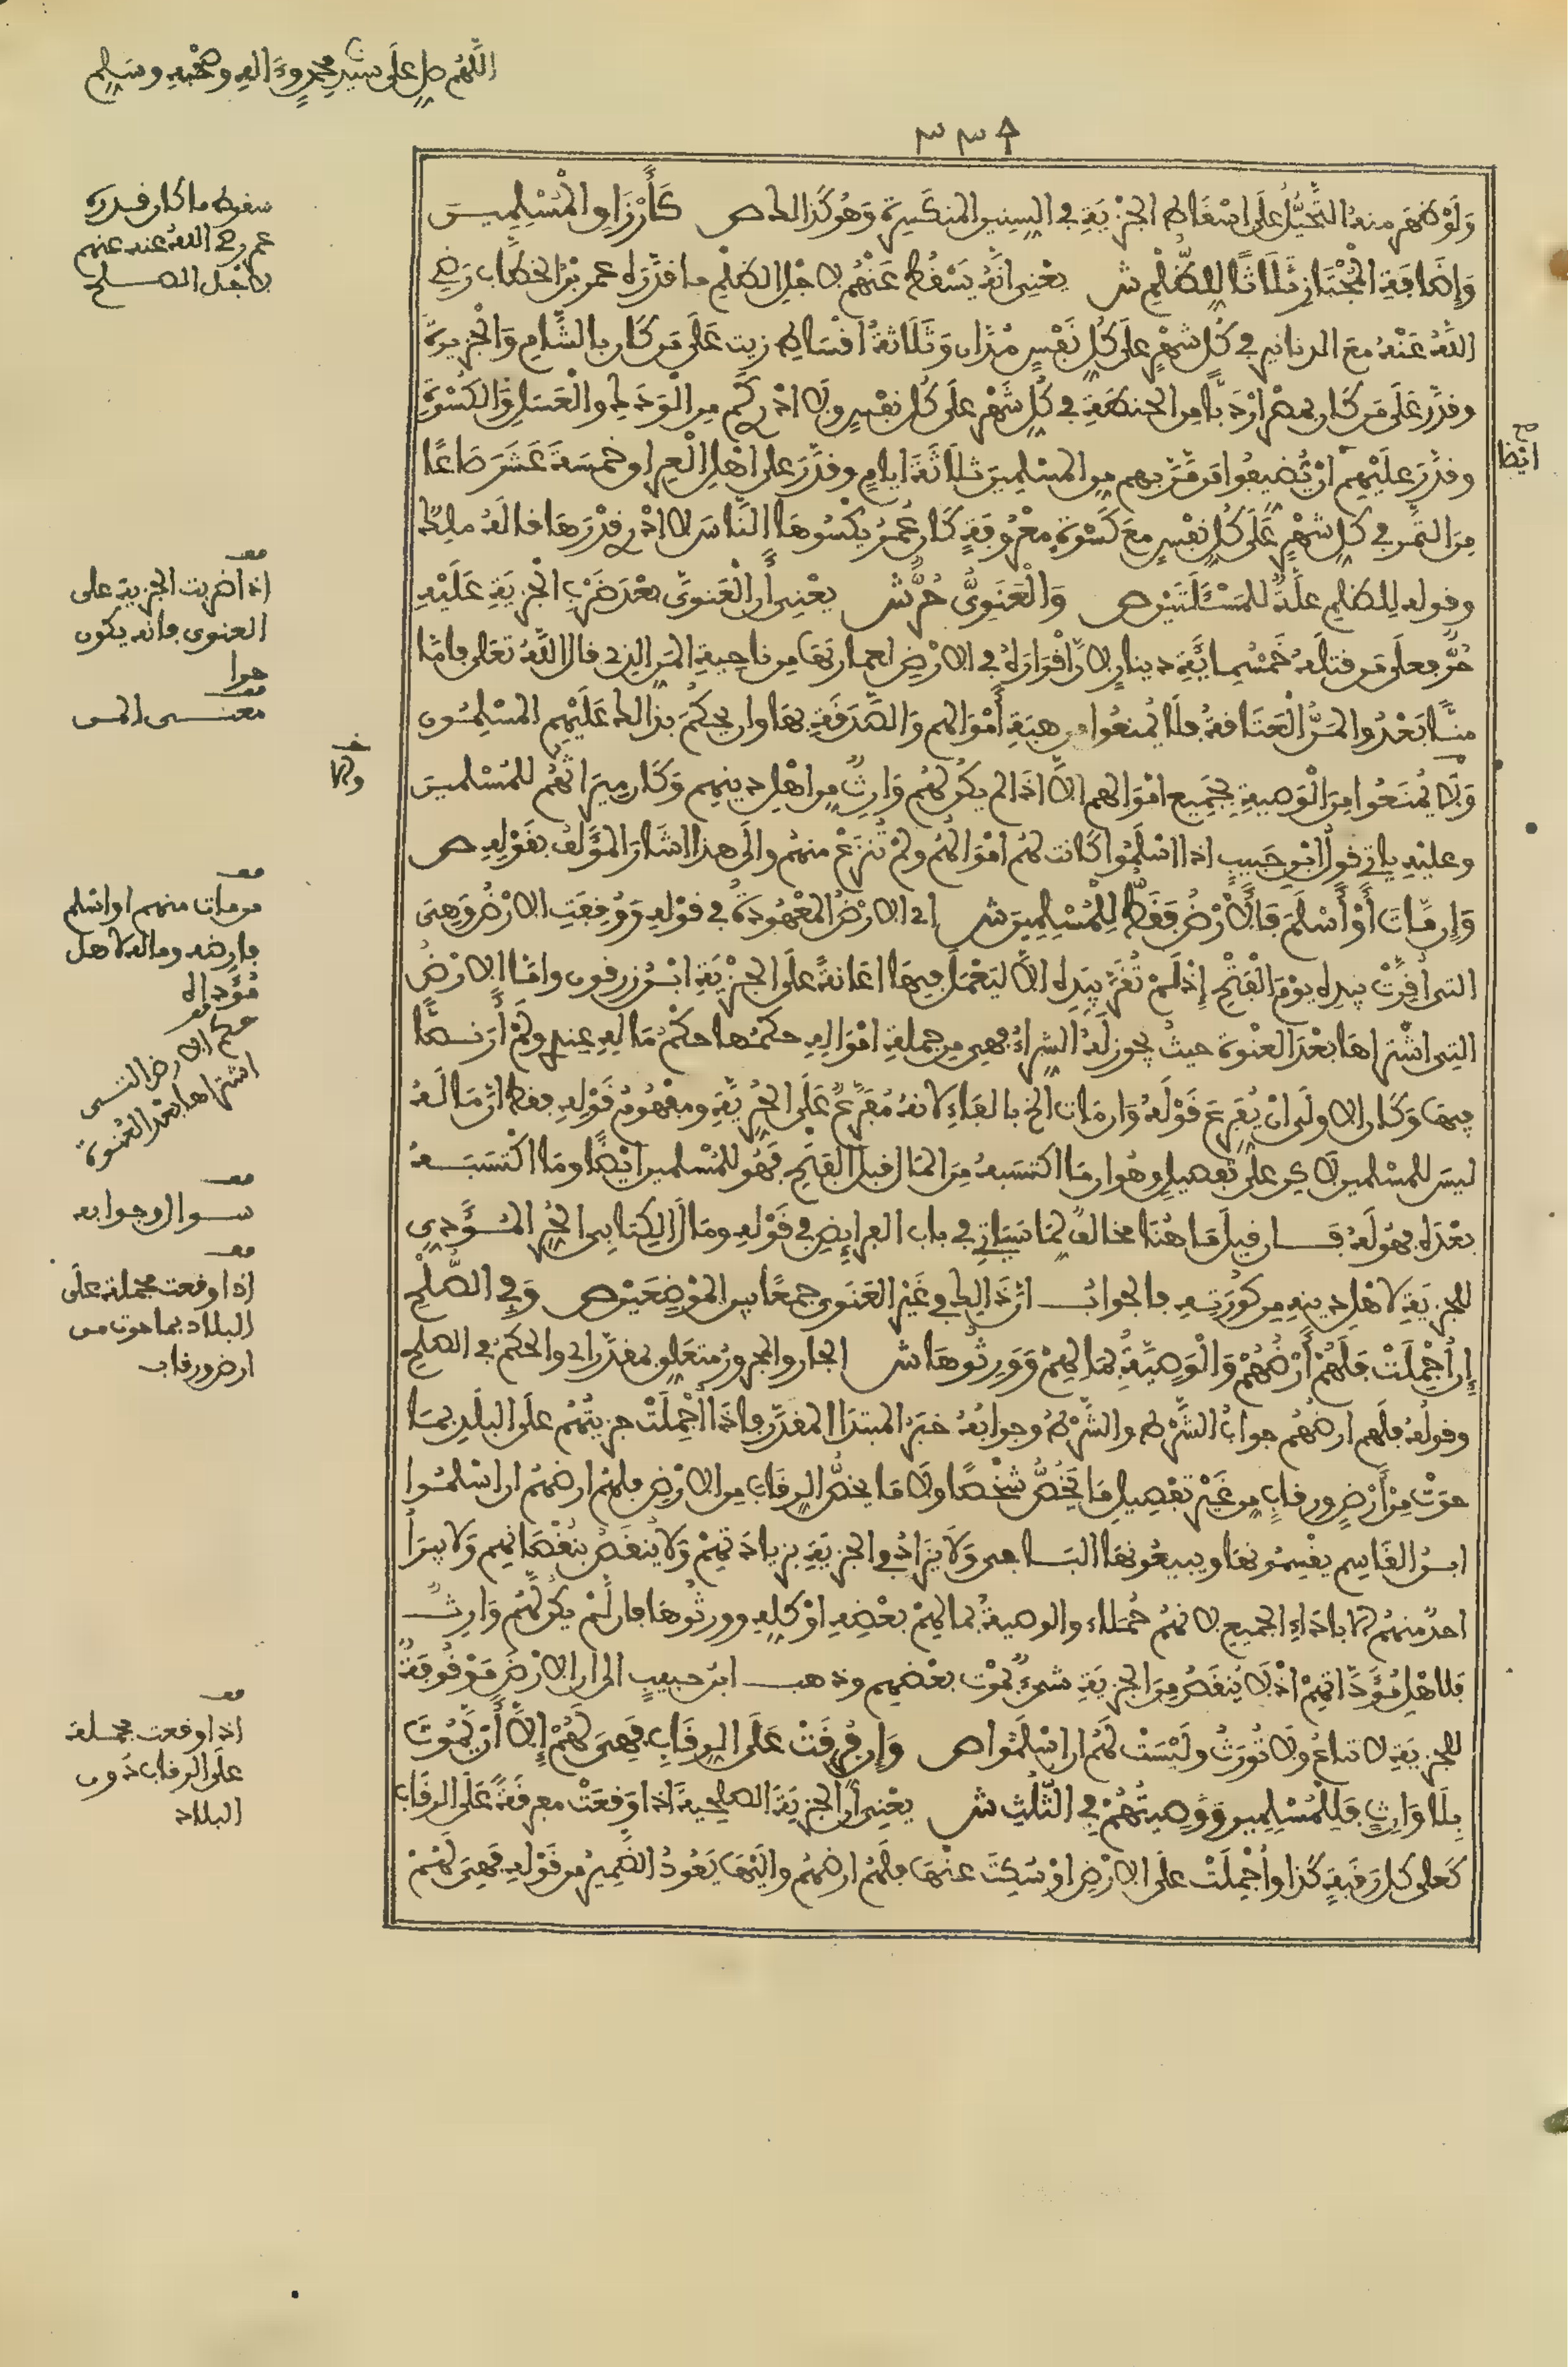 اللَّهُمَّ صل عَلَى سَيِّدِنَا مُحَمَّدٍ وَءَالِهِ وَصَحْبِهِ وَسَلِّم
وَلَوْ ظَهَرَ منهُ التَّحَيُّلُ عَلَى إسْقَاطِ الجِزْيَةِ في السِنِين المنكَسِرَة وَهُوَ كَذالك ص كَأَرْزَاقِ الْمُسْلِمِيـنَ
وَإِضَافَةِ الْمُجْتَازِ ثَلَاثًا لِلظُّلْمِ ش يعْنِي انَّهُ يَسْقُطُ عَنْهُمْ لاجْلِ الظلْمِ ما قَدَّرَه عمر بْنُ الخطَّاب رَضِيَ
اللَّهُ عَنْهُ مَعَ الدنانير في كُلِّ شَهْرٍ علَى كُلِّ نَفْسٍ مُدَّان وَثَلَاثةُ اقْسَاطِ زيت عَلَى مَن كَان بالشَّامِ وَالْجَزِيرَةِ
وقدَّرَ عَلَى مَن كَان بمصْرَ ارْدَبًّا مِن الحنطَةِ في كُلِّ شَهْرٍ علَى كُلِّ نفْسٍ ولا ادْرِي كَمْ مِن الْوَدَكِ والْعَسَلِ وَالكُسْوَةِ
وقدَّرَ عَلَيْهِمْ انْ يُّضيفُوا مَن مَّرَّ بِهِم مِن المسْلِمِينَ ثلَاثَةَ ايامٍ وقدَّرَ علَى اهْلِ الْعِرَاقِ خمْسَةَ عَشَرَ صَاعًا
مِنَ التَّمْرِ في كلِّ شهْرٍ عَلَى كُلِّ نفْسٍ مَعَ كسْوَةٍ معْرُوفَةٍ كَان عُمَرُ يكْسُوهَا النَّاسَ لا ادْرِي قدْرَهَا قالَهُ ملكٌ
وقوله لِلظلمِ علَّةٌ للمَسْئَلَتَيْن ص وَالْعَنَوِيُّ حُرٌّ ش يعْنِي أَنَّ الْعَنَوِيَّ بعْدَ ضَرْبِ الْجِزْيَةِ عَلَيْهِ
حُرٌّ فعلَى مَن قتلَهُ خَمْسُمِائَةِ دينارٍ لانَّ اقْرَارَهُ في الارْضِ لعمارتهَا مِن ناحِيةِ المَنِّ الذي قال اللَّهُ تعَلَى فامَّا
مَنًّا بَعْدُ والمَنُّ الْعَتَاقةُ فلَا يُمنعُوا مِن هبَةِ أَمْوَالهم وَالصَّدَقةِ بهَا وان يحْكُمَ بذالك عَلَيْهِم المسْلِمُون
وَلَا يُمْنَعُوا مِنَ الْوَصِيةِ بجَمِيعِ امْوَالهم الَّا اذَا لم يكُن لهُم وَارِثٌ مِن اهْلِ دينهِم وَكَان مِيرَاثُهُم للمُسْلمِينَ
وعليْهِ ياتي قولُ ابْنِ حَبيب اذا اسْلَمُوا كَانت لهُمُ امْوَالُهُمْ ولمْ تُنزَعْ منهُم والَى هذا اشَارَ المؤَلفُ بقَوْلِهِ ص
وَإِن مَّاتَ أَوْ أَسْلَمَ فَالْأَرْضُ فَقَطْ لِلْمُسْلِمِينَ ش اي الارْضُ المعْهُودَةُ في قوْلِهِ وَوُقِفَتِ الارْضُ وَهِيَ
التي أُقِرَّتْ بيَدِه يوْمَ الْفَتْحِ إذْ لَمْ تُقَرَّ بيَدِه الَّا ليَعْمَلَ فِيهَا اعَانةً علَى الجِزْيَةِ ابْـنُ زرقون وامَّا الارْضُ
التي اشْتراهَا بعْدَ العنْوَة حيثُ يجوز لَهُ الشرَاءُ فهيَ مِن جملةِ امْوَالِهِ حكْمُها حكْمُ مَالِهِ عِندِي ولَمْ أَرَ نـصًّا
فيهَا وَكَان الاولَى انْ يُفَرِّعَ قوْلَهُ وَإن مَات الخ بالفَاءِ لانهُ مُفَرَّعٌ عَلَى الحُرِّيَّةِ ومفهُومُ قَوْلِهِ فقط انَّ مَا لَهُ
ليسَ للمُسْلمين لاكِن علَى تفْصِيلٍ وهُوَ ان مَا اكتسَبهُ مِنَ المَال قبلَ الفَتْحِ فَهُوَ للمُسْلمين ايْضًا ومَا اكْتَسَبَـهُ
بعْدَه فهُوَ لَهُ فَـــإن قيلَ مَا هُنَا مخالفٌ لِّمَا سَيَاتي في باب الفرايِضِ في قَوْلِهِ ومَالُ الكِتابي الحُرِّ المُـؤَدِّي
للجِزْيَةِ لاهْلِ دِينِهِ مِن كُورَتِـهِ فالجوابُـــ انَّ ذَالِكَ في غَيْرِ العَنَوي جمعًا بين الموْضِعَيْن ص وَفي الصُّلْحِ
إِنْ أُجْمِلَتْ فَلَهُمْ أَرْضُهُمْ وَالْوَصِيَّةُ بِمَالِهِمْ وَوَرِثُوهَا ش الجار والمجرورُ متعَلق بمقدَّرٍ اي والحكْمُ في الصلحِ
وقولُهُ فلَهم ارضُهُم جوابُ الشَّرْطِ والشَّرْطُ وجوابُهُ خبَرُ المبتدَإ المقدَّرِ فإذَا أُجْمِلَتْ جزيتُهُمْ علَى البلَدِ بمَـا
حوَتْ مِنْ أَرْضٍ ورقابٍ مِن غَيْرِ تفْصِيلِ مَا يَخُصُّ شخْصًا ولا مَا يخُصُّ الرِقَابَ مِن الارْضِ فلهُمُ ارضهُمُ ان اسْلَمُـوا
ابْـنُ القَاسِم يقْسِمُونهَا ويبيعُونهَا البَـاجي ولَا يُزَادُ في الجِزْيَةِ بزيادَتهِمْ وَلا يُنقَصُ بنُقْصَانهِم وَلا يبرَأُ
احدٌ منهُم الا باداءِ الجميعِ لانهُمُ حُمَلاء والوصيةُ بمالهِمْ بعْضِهِ اوْ كلِهِ وورثُوهَا فان لَّمْ يكُن لهُم وَارِثٌـــ
فلاهْلِ مُؤَدَّاهُمْ اذْ لَا يُنقَصُ مِنَ الجِزْيَةِ شيءٌ بمَوْت بعْضِهِم وذهبـــ ابنُ حبيبٍ الى ان الارْضَ مَوْقُوفَةٌ
للجِزْيَةِ لا تباعُ ولا تُورَثُ ولَيْسَتْ لهُمُ ان اسْلَمُوا ص وَإِن فُرِّقَتْ عَلَى الرِقَابِ فَهِيَ لَهُمْ إِلَّا أَنْ يَّمُوتَ
بِلَا وَارِثٍ فَلِلْمُسْلِمِينَ وَوَصِيَّتُهُمْ فِي الثُّلُثِ ش يعْنِي أَنَّ الجِزْيَةَ الصلحيةَ اذَا وقَعَتْ مفرقَةً عَلَى الرقَابِ
كَعلَى كلِّ رقَبَةٍ كَذا وأُجْمِلَتْ علَى الارْضِ اوْ سُكِتَ عنْهَا فلَهُمُ ارضهُمُ والَيْهَا يَعُودُ الضَّمِيرُ مِن قَوْلِهِ فَهِيَ لهُمْ
سقوط ما كان قدره
عمر رضي اللهُ عنه عنهم
لاجْل الظـلـم
ايْضًا
مـفـ
اذا ضربت الجزية على
العنوي فانه يكون
حرا
مـفـ
معنـى المن
ولا
مـفـ
من مات منهم او اسْلم
فارضه وماله لاهل
مُؤَداه
مـفـ
حكم الارض التـي
اشتراها بعْد العنوة
مـفـ
سـؤال وجوابه
مـفـ
اذا وقعت مجملة علَى
البلاد بما حوت من
ارض ورقاب
مـفـ
اذا وقعت مجملة
علَى الرقاب دون
البلاد